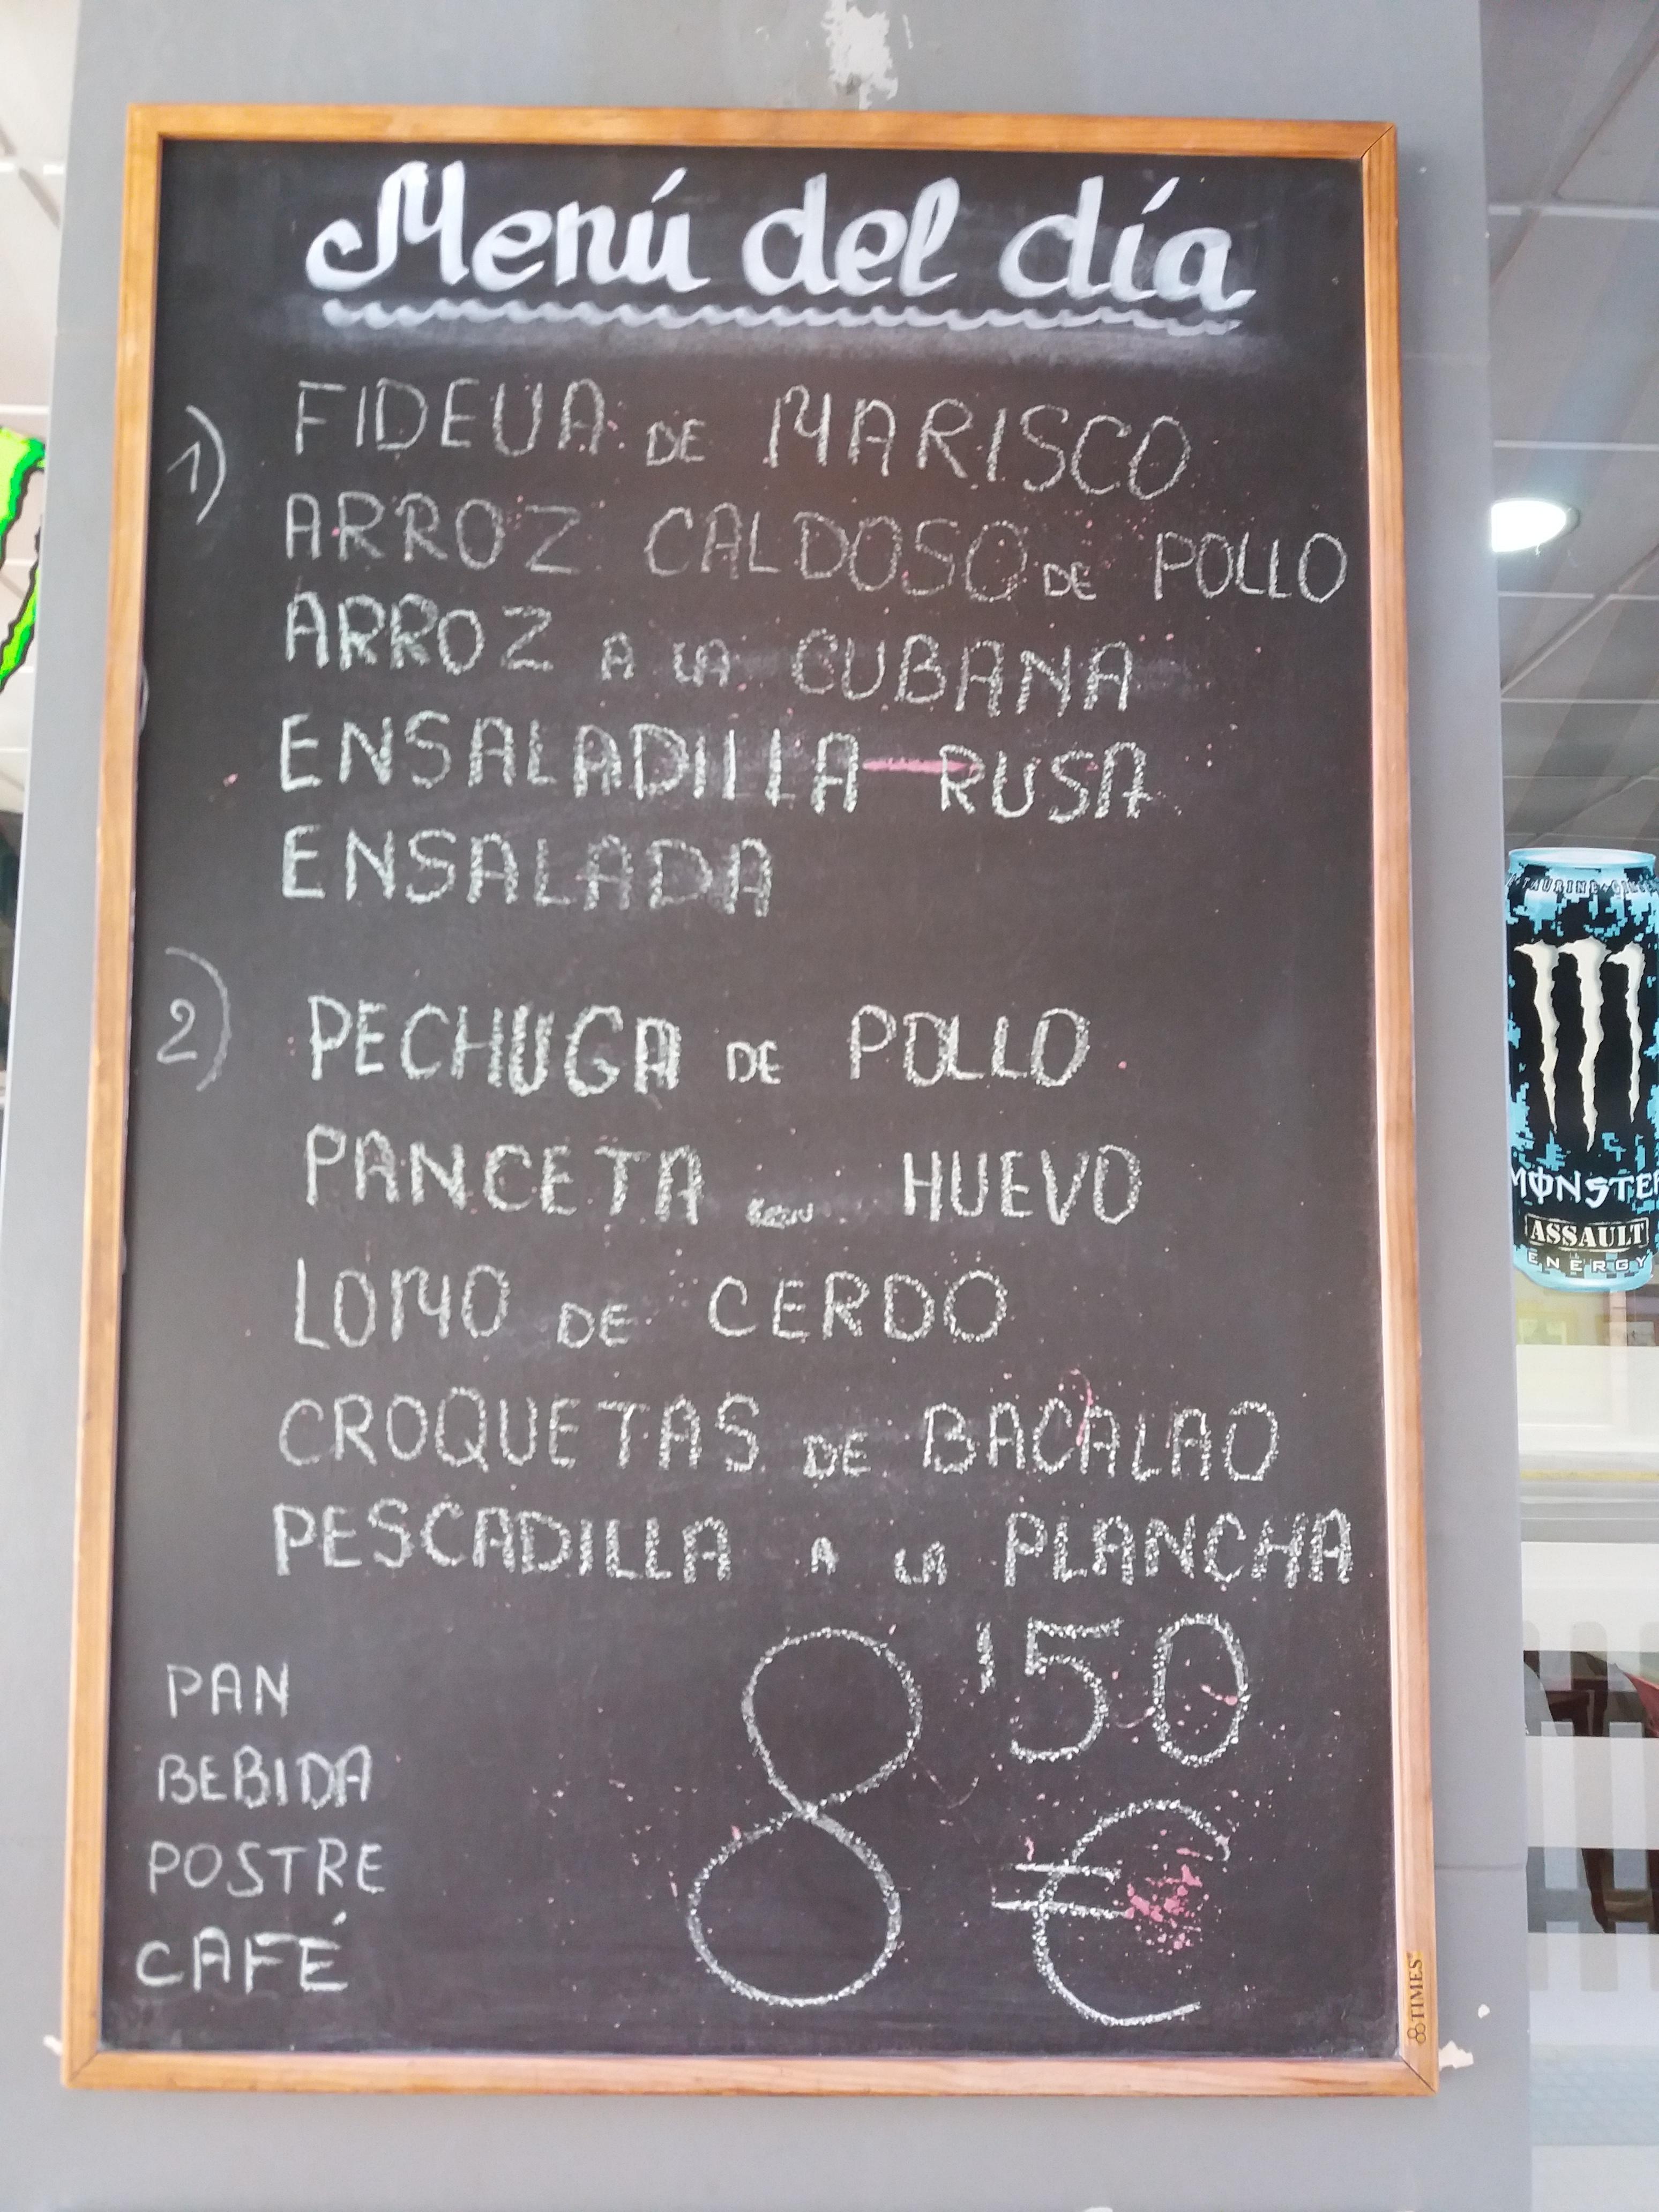 Menú del día
1) FIDEUA DE MARISCO
ARROZ CALDOSO DE POLLO
ARROZ A LA CUBANA
ENSALADILLA RUSA
ENSALADA
2) PECHUGA DE POLLO
PANCETA CON HUEVO
LOMO DE CERDO
CROQUETAS DE BACALAO
PESCADILLA A LA PLANCHA
PAN
BEBIDA
POSTRE
CAFÉ
8'50 €
TIMES
MONSTER
ASSAULT
ENERGY